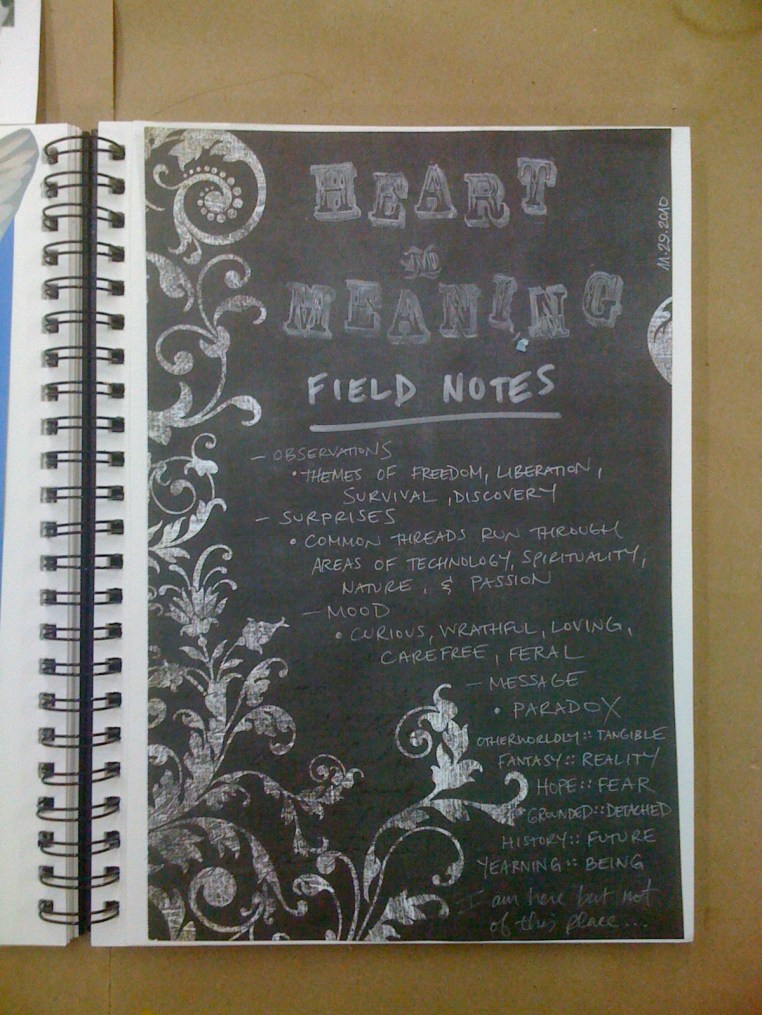 HEART
TO
MEANING
11.29.2010
FIELD NOTES
— OBSERVATIONS
• THEMES OF FREEDOM, LIBERATION,
SURVIVAL, DISCOVERY
— SURPRISES
• COMMON THREADS RUN THROUGH
AREAS OF TECHNOLOGY, SPIRITUALITY,
NATURE, & PASSION
— MOOD
• CURIOUS, WRATHFUL, LOVING,
CAREFREE, FERAL
— MESSAGE
• PARADOX
OTHERWORLDLY :: TANGIBLE
FANTASY :: REALITY
HOPE :: FEAR
GROUNDED :: DETACHED
HISTORY :: FUTURE
YEARNING :: BEING
I am here but not
of this place...